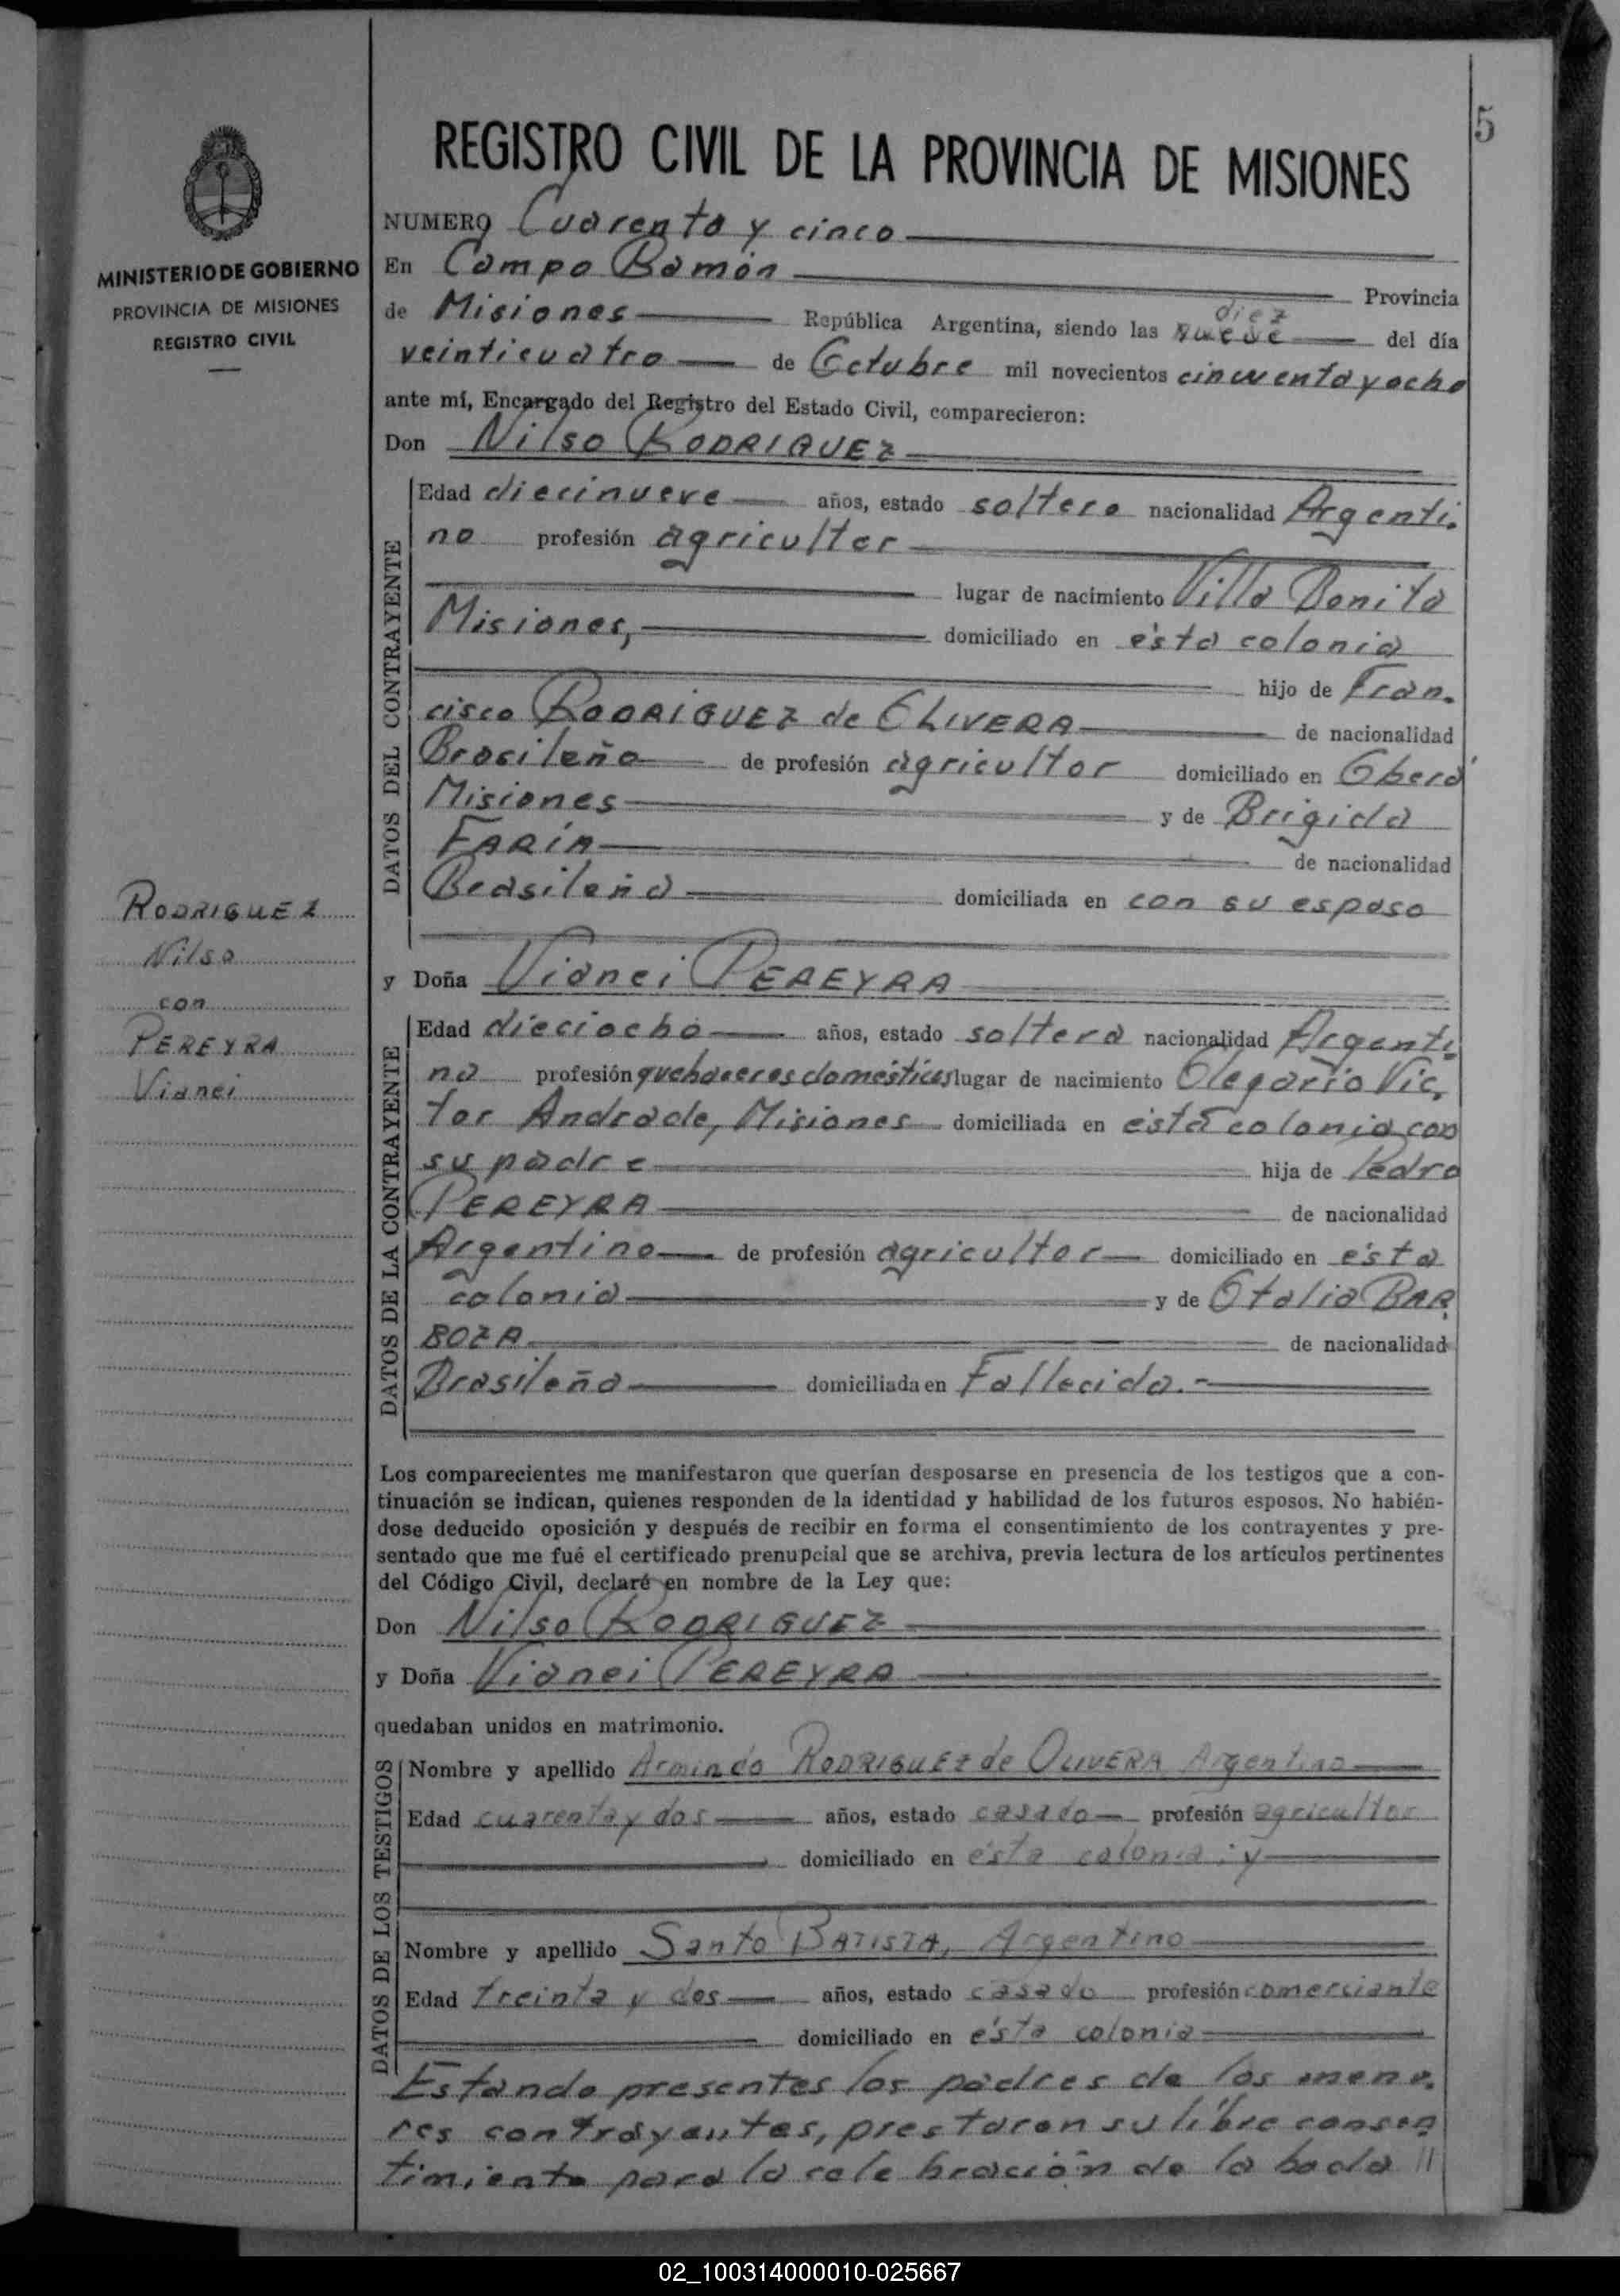 5
REGISTRO CIVIL DE LA PROVINCIA DE MISIONES
MINISTERIO DE GOBIERNO
PROVINCIA DE MISIONES
REGISTRO CIVIL
NUMERO Cuarenta y cinco
En Campo Ramón Provincia
diez
de Misiones República Argentina, siendo las nueve del día
veinticuatro de Octubre mil novecientos cincuenta y ocho
ante mí, Encargado del Registro del Estado Civil, comparecieron:
Don Nilso RODRIGUEZ
DATOS DEL CONTRAYENTE
Edad diecinueve años, estado soltero nacionalidad Argenti-
no profesión agricultor
lugar de nacimiento Villa Bonita
Misiones, domiciliado en ésta colonia
hijo de Fran-
cisco RODRIGUEZ de OLIVERA de nacionalidad
Brasileña de profesión agricultor domiciliado en Oberá
Misiones y de Brigida
FARIA de nacionalidad
Brasileña domiciliada en con su esposo
RODRIGUEZ
Nilso
con
PEREYRA
Vianei
y Doña Vianei PEREYRA
DATOS DE LA CONTRAYENTE
Edad dieciocho años, estado soltera nacionalidad Argenti-
na profesión quehaceres domésticos lugar de nacimiento Olegario Vic-
tor Andrade, Misiones domiciliada en ésta colonia con
su padre hija de Pedro
PEREYRA de nacionalidad
Argentino de profesión agricultor domiciliado en ésta
colonia y de Otalia BAR-
BOZA de nacionalidad
Brasileña domiciliada en Fallecida.-
Los comparecientes me manifestaron que querían desposarse en presencia de los testigos que a con-
tinuación se indican, quienes responden de la identidad y habilidad de los futuros esposos. No habién-
dose deducido oposición y después de recibir en forma el consentimiento de los contrayentes y pre-
sentado que me fué el certificado prenupcial que se archiva, previa lectura de los artículos pertinentes
del Código Civil, declaré en nombre de la Ley que:
Don Nilso RODRIGUEZ
y Doña Vianei PEREYRA
quedaban unidos en matrimonio.
DATOS DE LOS TESTIGOS
Nombre y apellido Armindo RODRIGUEZ de OLIVERA Argentino
Edad cuarenta y dos años, estado casado profesión agricultor
domiciliado en ésta colonia; y
Nombre y apellido Santo BATISTA, Argentino
Edad treinta y dos años, estado casado profesión comerciante
domiciliado en ésta colonia
Estando presentes los padres de los meno-
res contrayentes, prestaron su libre consen
timiento para la celebración de la boda //
02_100314000010-025667